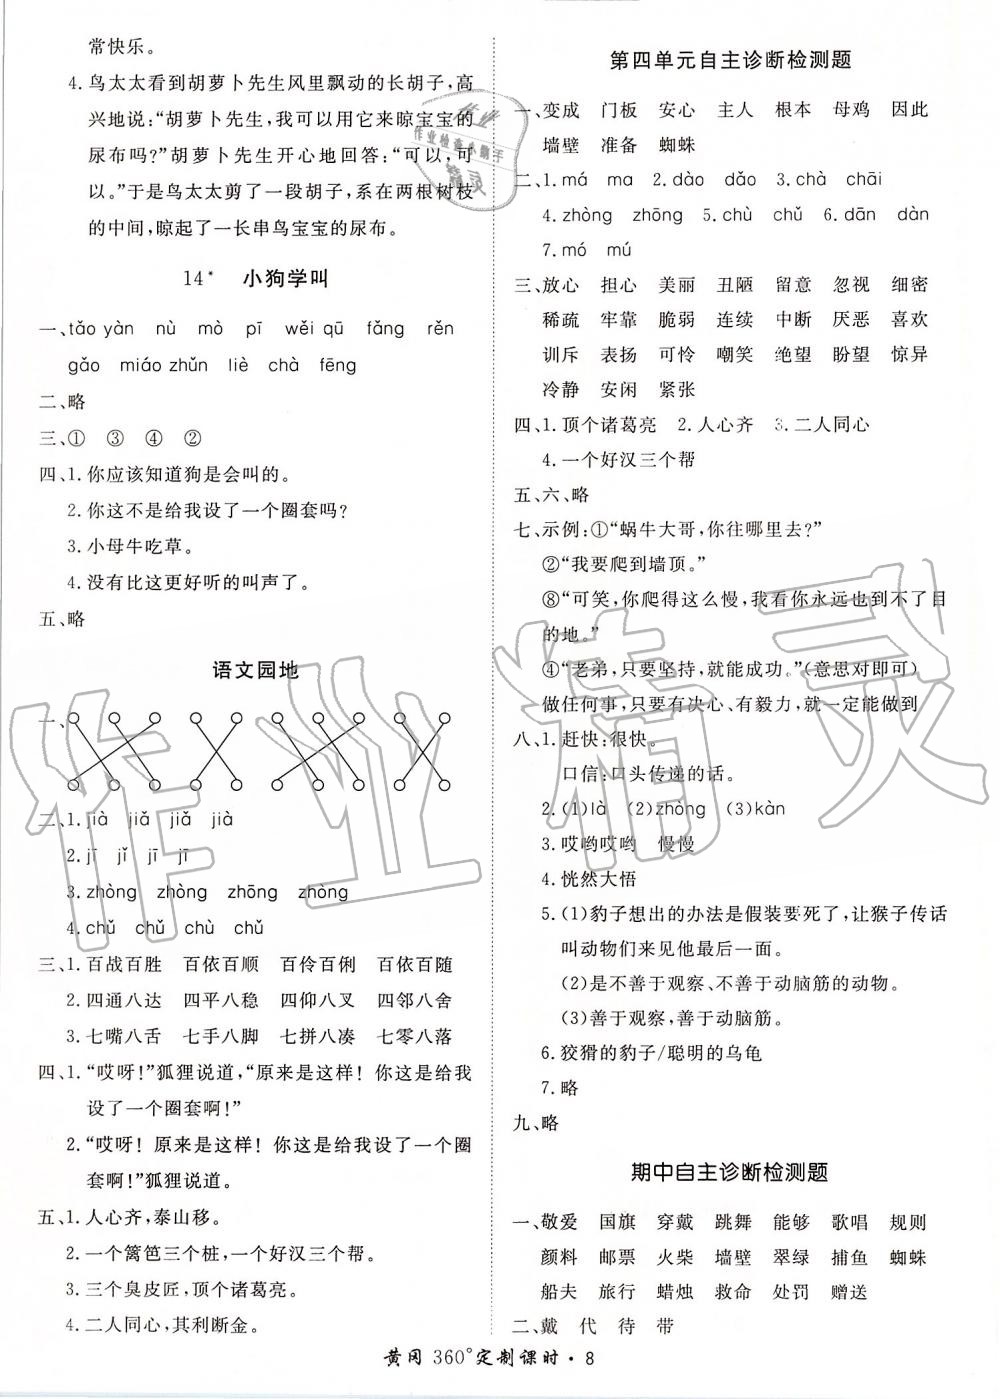 常快乐。
4.鸟太太看到胡萝卜先生风里飘动的长胡子,高
兴地说:“胡萝卜先生,我可以用它来晾宝宝的
尿布吗?”胡萝卜先生开心地回答:“可以,可
以。”于是鸟太太剪了一段胡子,系在两根树枝
的中间,晾起了一长串鸟宝宝的尿布。
14* 小狗学叫
一、tǎo yàn nù mò pī wěi qū fǎng rěn
gǎo miáo zhǔn liè chà fēng
二、略
三、① ③ ④ ②
四、1.你应该知道狗是会叫的。
2.你这不是给我设了一个圈套吗?
3.小母牛吃草。
4.没有比这更好听的叫声了。
五、略
语文园地
一、
二、1.jià jiǎ jiǎ jià
2.jī jǐ jī jī
3.zhòng zhòng zhōng zhōng
4.chǔ chǔ chù chǔ
三、1.百战百胜 百依百顺 百伶百俐 百依百随
2.四通八达 四平八稳 四仰八叉 四邻八舍
3.七嘴八舌 七手八脚 七拼八凑 七零八落
四、1.“哎呀!”狐狸说道,“原来是这样! 你这是给我
设了一个圈套啊!”
2.“哎呀! 原来是这样! 你这是给我设了一个圈
套啊!”狐狸说道。
五、1.人心齐,泰山移。
2.一个篱笆三个桩,一个好汉三个帮。
3.三个臭皮匠,顶个诸葛亮。
4.二人同心,其利断金。
第四单元自主诊断检测题
一、变成 门板 安心 主人 根本 母鸡 因此
墙壁 准备 蜘蛛
二、1.má ma 2.dào dǎo 3.chà chāi
4.zhòng zhōng 5.chù chǔ 6.dān dàn
7.mó mú
三、放心 担心 美丽 丑陋 留意 忽视 细密
稀疏 牢靠 脆弱 连续 中断 厌恶 喜欢
训斥 表扬 可怜 嘲笑 绝望 盼望 惊异
冷静 安闲 紧张
四、1.顶个诸葛亮 2.人心齐 3.二人同心
4.一个好汉三个帮
五、六、略
七、示例:①“蜗牛大哥,你往哪里去?”
②“我要爬到墙顶。”
⑧“可笑,你爬得这么慢,我看你永远也到不了目
的地。”
④“老弟,只要坚持,就能成功。”(意思对即可)
做任何事,只要有决心、有毅力,就一定能做到
八、1.赶快:很快。
口信:口头传递的话。
2.(1)là (2)zhōng (3)kàn
3.哎哟哎哟 慢慢
4.恍然大悟
5.(1)豹子想出的办法是假装要死了,让猴子传话
叫动物们来见他最后一面。
(2)是不善于观察、不善于动脑筋的动物。
(3)善于观察,善于动脑筋。
6.狡猾的豹子/聪明的乌龟
7.略
九、略
期中自主诊断检测题
一、敬爱 国旗 穿戴 跳舞 能够 歌唱 规则
颜料 邮票 火柴 墙壁 翠绿 捕鱼 蜘蛛
船夫 旅行 蜡烛 救命 处罚 赠送
二、戴 代 待 带
黄冈 360°定制课时·8
作业
作业检查小助手
精灵
作业精灵